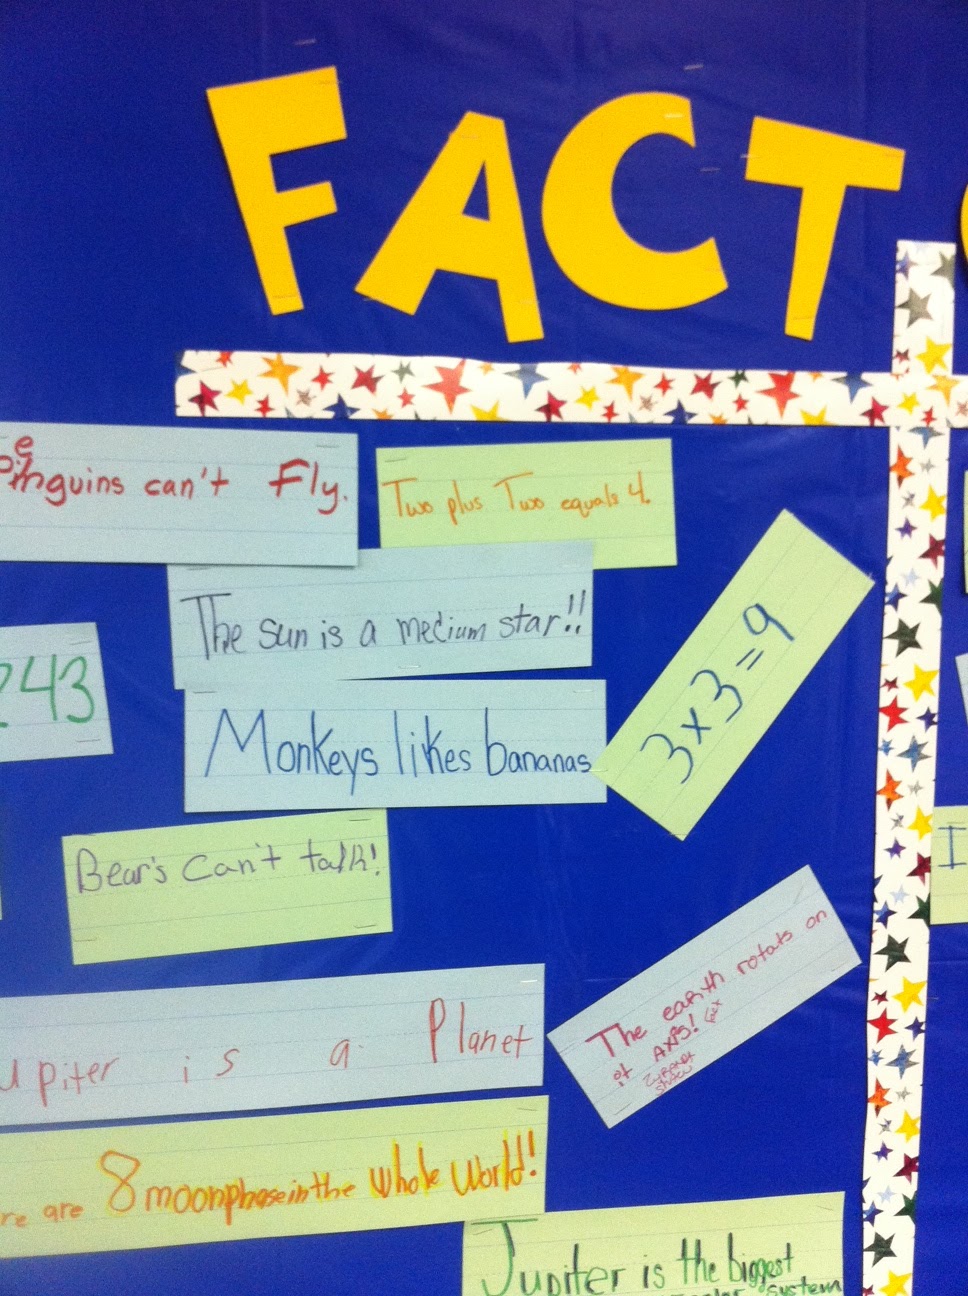 FACT
Penguins can't Fly.
Two plus Two equals 4.
The sun is a medium star!!
243
Monkeys likes bananas
3x3=9
Bear's Can't talk!
The earth rotats on
it AXPS!
upiter is a Planet
re are 8 moonphase in the whole world!
I
Jupiter is the biggest
system